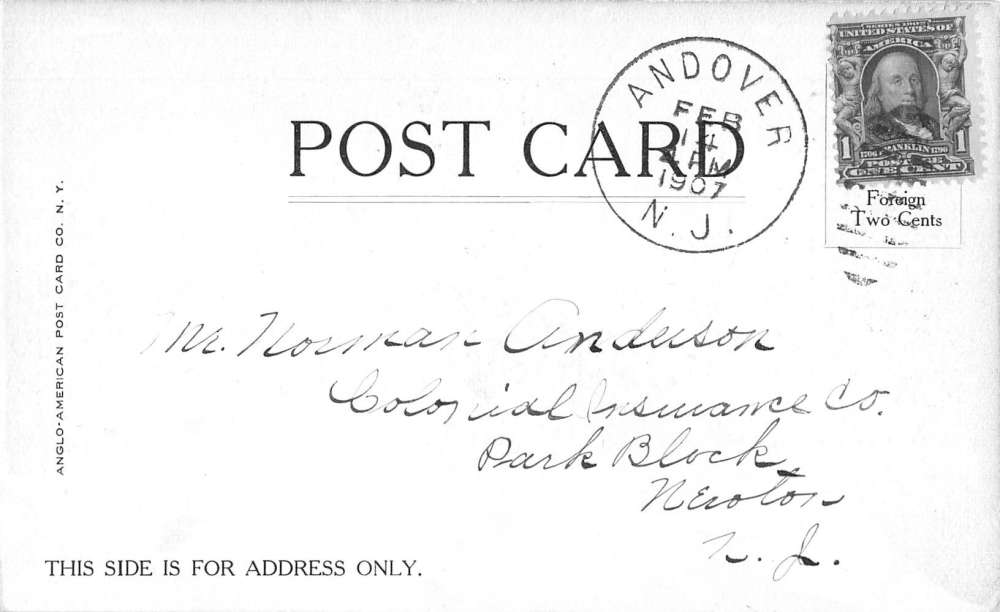 POST CARD
ANDOVER
FEB
14
4 PM
1907
N.J.
UNITED STATES OF
AMERICA
1 1706 FRANKLIN 1790 1
POSTAGE
ONE CENT
Foreign
Two Cents
ANGLO-AMERICAN POST CARD CO. N. Y.
Mr. Norman Anderson
Colonial Insurance Co.
Park Block
Newton
N. J.
THIS SIDE IS FOR ADDRESS ONLY.